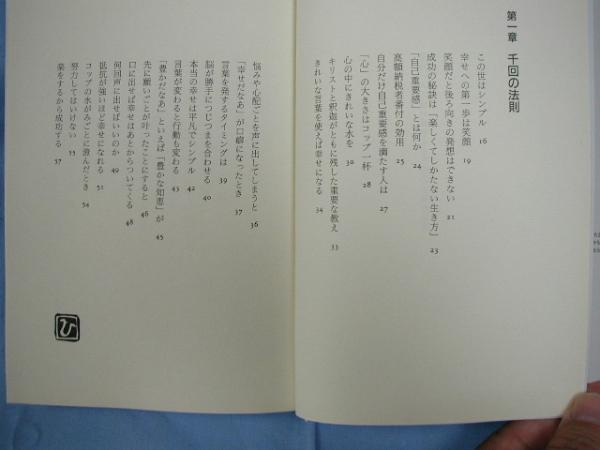 第一章 千回の法則
この世はシンプル 16
幸せへの第一歩は笑顔 19
笑顔だと後ろ向きの発想はできない 21
成功の秘訣は「楽しくてしかたない生き方」 23
「自己重要感」とは何か 24
高額納税者番付の効用 25
自分だけ自己重要感を満たす人は 27
「心」の大きさはコップ一杯 28
心の中にきれいな水を 30
キリストと釈迦がともに残した重要な教え 33
きれいな言葉を使えば幸せになる 34
悩みや心配ごとを声に出してしまうと 36
「幸せだなあ」が口癖になったとき 37
言葉を発するタイミングは 39
脳が勝手につじつまを合わせる 40
本当の幸せは平凡でシンプル 42
言葉が変わると行動も変わる 43
「豊かだなあ」といえば「豊かな知恵」が 45
先に願いごとが叶ったことにすると 46
口に出せば幸せはあとからついてくる 48
何回声に出せばいいのか 49
抵抗が強いほど幸せになれる 51
コップの水がみごとに澄んだとき 54
努力してはいけない 55
楽をするから成功する 57
ひ